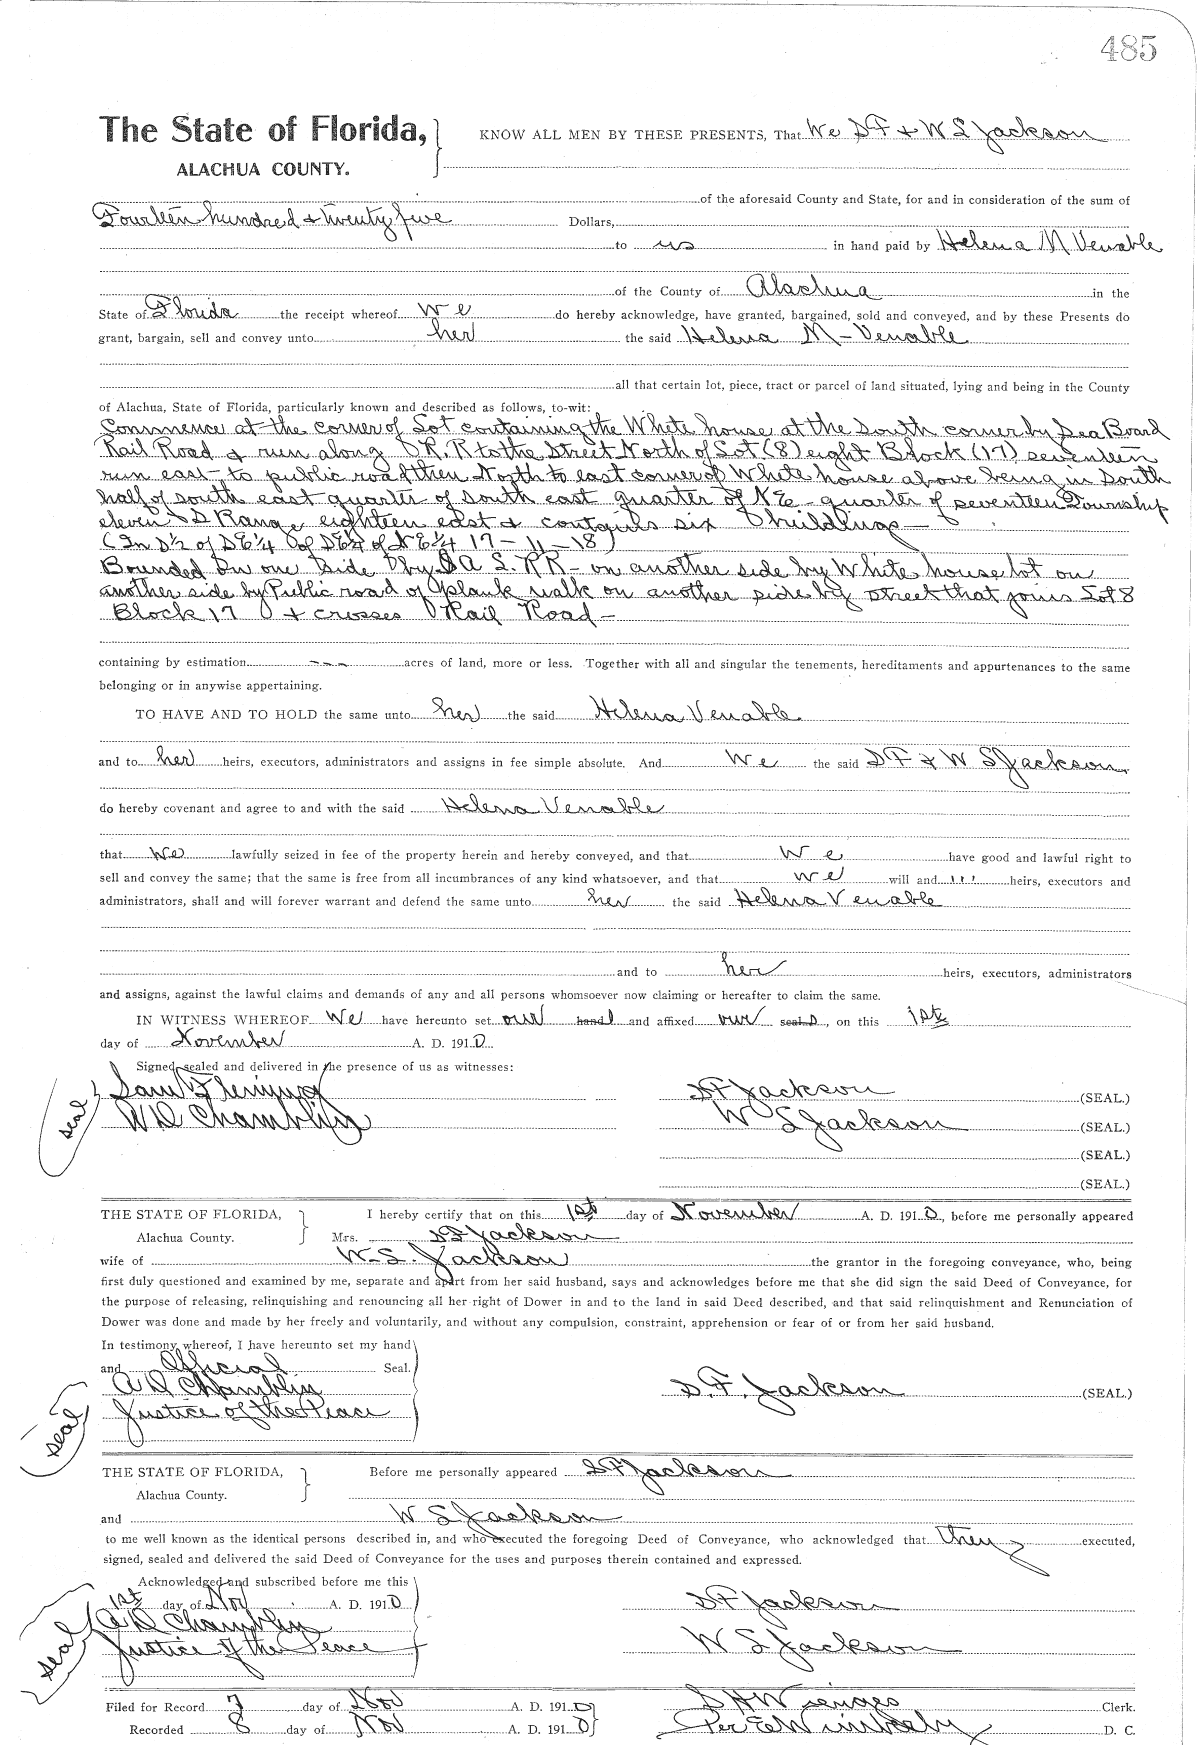 485
The State of Florida, KNOW ALL MEN BY THESE PRESENTS, That We D F & W S Jackson
ALACHUA COUNTY.
of the aforesaid County and State, for and in consideration of the sum of
Fourteen hundred & twenty five Dollars,
to us in hand paid by Helena M Venable
of the County of Alachua in the
State of Florida the receipt whereof We do hereby acknowledge, have granted, bargained, sold and conveyed, and by these Presents do
grant, bargain, sell and convey unto her the said Helena M - Venable
all that certain lot, piece, tract or parcel of land situated, lying and being in the County
of Alachua, State of Florida, particularly known and described as follows, to-wit:
Commence at the corner of Lot containing the White house at the South corner by Sea Board
Rail Road & run along R. R to the Street North of Lot (8) eight Block (17) seventeen
run east to public road then North to east corner of White house above being in South
half of south east quarter of south east quarter of N E quarter of seventeen Township
eleven S Range eighteen east & contains six buildings —
(In S 1/2 of S E 1/4 of S E 1/4 of N E 1/4 17 - 11 - 18)
Bounded on one side by S A L RR - on another side by White house lot on
another side by Public road of plank walk on another side by street that joins Lot 8
Block 17 & crosses Rail Road -
containing by estimation - - - acres of land, more or less. Together with all and singular the tenements, hereditaments and appurtenances to the same
belonging or in anywise appertaining.
TO HAVE AND TO HOLD the same unto her the said Helena Venable
and to her heirs, executors, administrators and assigns in fee simple absolute. And We the said D F & W S Jackson
do hereby covenant and agree to and with the said Helena Venable
that We lawfully seized in fee of the property herein and hereby conveyed, and that We have good and lawful right to
sell and convey the same; that the same is free from all incumbrances of any kind whatsoever, and that we will and ''' heirs, executors and
administrators, shall and will forever warrant and defend the same unto her the said Helena Venable
and to her heirs, executors, administrators
and assigns, against the lawful claims and demands of any and all persons whomsoever now claiming or hereafter to claim the same.
IN WITNESS WHEREOF We have hereunto set our hand and affixed our seals, on this 1st
day of November A. D. 1910
Signed, sealed and delivered in the presence of us as witnesses:
Sam Fleming D F Jackson (SEAL.)
seal A D Chamblin W S Jackson (SEAL.)
(SEAL.)
(SEAL.)
THE STATE OF FLORIDA, I hereby certify that on this 1st day of November A. D. 1910, before me personally appeared
Alachua County. Mrs. D F Jackson
wife of W. S. Jackson the grantor in the foregoing conveyance, who, being
first duly questioned and examined by me, separate and apart from her said husband, says and acknowledges before me that she did sign the said Deed of Conveyance, for
the purpose of releasing, relinquishing and renouncing all her right of Dower in and to the land in said Deed described, and that said relinquishment and Renunciation of
Dower was done and made by her freely and voluntarily, and without any compulsion, constraint, apprehension or fear of or from her said husband.
In testimony whereof, I have hereunto set my hand
and Official Seal.
A D Chamblin D. F. Jackson (SEAL.)
seal Justice of the Peace
THE STATE OF FLORIDA, Before me personally appeared D F Jackson
Alachua County.
and W S Jackson
to me well known as the identical persons described in, and who executed the foregoing Deed of Conveyance, who acknowledged that they executed,
signed, sealed and delivered the said Deed of Conveyance for the uses and purposes therein contained and expressed.
Acknowledged and subscribed before me this
1st day of Nov A. D. 1910 D F Jackson
A D Chamblin
seal Justice of the Peace W S Jackson
Filed for Record 7 day of Nov A. D. 1910 S H Wienges Clerk.
Recorded 8 day of Nov A. D. 1910 Per E Wimberly D. C.